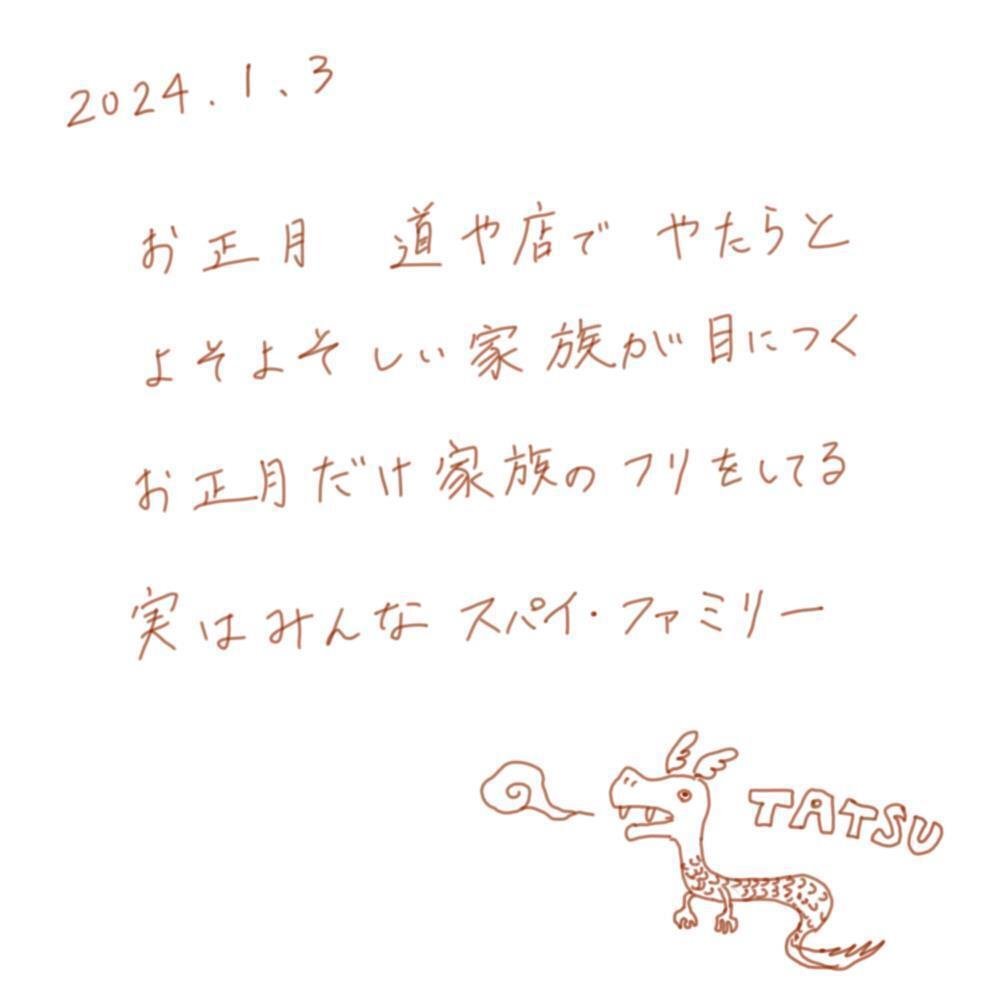 2024.1.3
お正月 道や店で やたらと
よそよそしい家族が目につく
お正月だけ家族のフリをしてる
実はみんなスパイ・ファミリー
TATSU